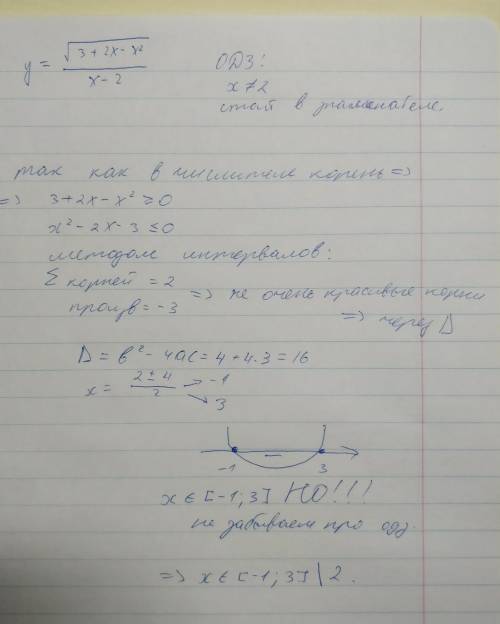 y = √(3+2x-x²) / (x-2)
ОДЗ:
x≠2
стоит в знаменателе.
так как в числителе корень =>
=> 3+2x-x² ≥ 0
x²-2x-3 ≤ 0
методом интервалов:
Σ корней = 2
произв = -3
=> не очень красивые корни
=> через D
D = b² - 4ac = 4+4·3 = 16
x = (2±4)/2 → -1
↘ 3
-
-1 3
x ∈ [-1; 3] НО!!!
не забываем про одз.
=> x ∈ [-1; 3] \ 2.